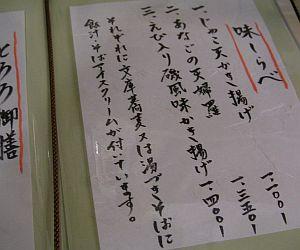 味しらべ
一、じゃこ天かき揚げ 一、一〇〇
二、あなごの天婦羅 一、三五〇
三、えび入り磯風味かき揚げ 一、四〇〇
それぞれに文庫蕎麦又は湯づきそばに
アイスクリームが付いています。
とろろ御膳